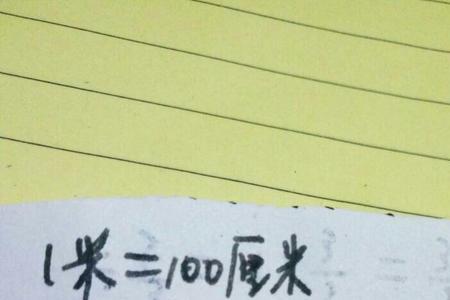 1米=100厘米